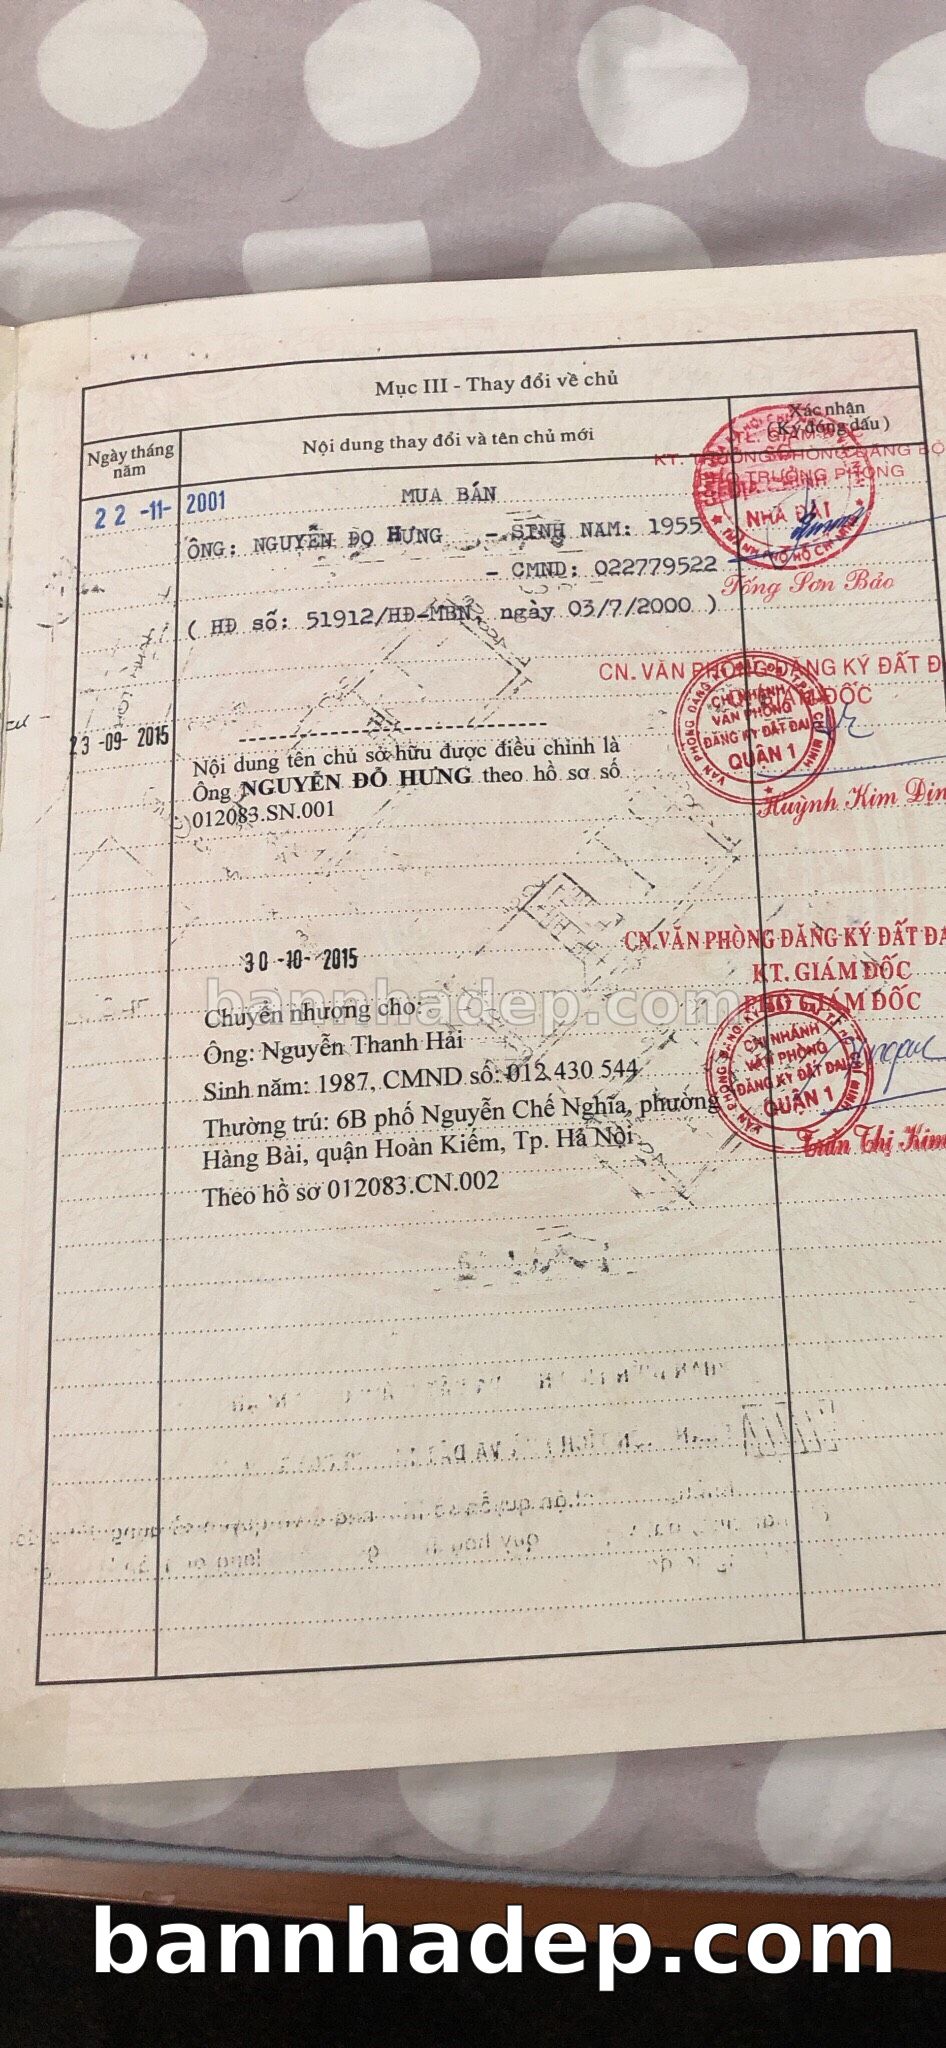 Mục III - Thay đổi về chủ
Ngày tháng năm
Nội dung thay đổi và tên chủ mới
Xác nhận
(Ký đóng dấu)
TL. GIÁM ĐỐC
KT. TRƯỞNG PHÒNG ĐĂNG BỘ
PHÓ TRƯỞNG PHÒNG
NHÀ ĐẤT
22 -11- 2001
MUA BÁN
ÔNG: NGUYỄN ĐỌ HƯNG - SINH NĂM: 1955
- CMND: 022779522
Tống Sơn Bảo
( HĐ số: 51912/HĐ-MBN, ngày 03/7/2000 )
CN. VĂN PHÒNG ĐĂNG KÝ ĐẤT Đ
GIÁM ĐỐC
CHI NHÁNH
VĂN PHÒNG
ĐĂNG KÝ ĐẤT ĐAI
QUẬN 1
23 -09- 2015
Nội dung tên chủ sở hữu được điều chỉnh là
Ông NGUYỄN ĐỖ HƯNG theo hồ sơ số
012083.SN.001
Huỳnh Kim Địn
30 -10- 2015
CN.VĂN PHÒNG ĐĂNG KÝ ĐẤT ĐA
KT. GIÁM ĐỐC
PHÓ GIÁM ĐỐC
bannhadep.com
Chuyển nhượng cho:
Ông: Nguyễn Thanh Hải
Sinh năm: 1987, CMND số: 012 430 544
Thường trú: 6B phố Nguyễn Chế Nghĩa, phường
Hàng Bài, quận Hoàn Kiếm, Tp. Hà Nội
Theo hồ sơ 012083.CN.002
CHI NHÁNH
VĂN PHÒNG
ĐĂNG KÝ ĐẤT ĐAI
QUẬN 1
Trần Thị Kim
bannhadep.com